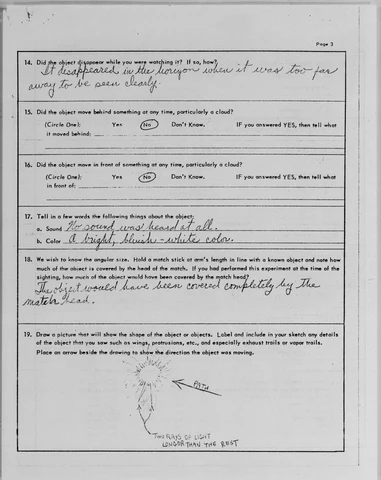 Page 3
14. Did the object disappear while you were watching it? If so, how?
It disappeared in the horizon when it was too far
away to be seen clearly.
15. Did the object move behind something at any time, particularly a cloud?
(Circle One): Yes No Don't Know. IF you answered YES, then tell what
it moved behind:
16. Did the object move in front of something at any time, particularly a cloud?
(Circle One): Yes No Don't Know. IF you answered YES, then tell what
in front of:
17. Tell in a few words the following things about the object:
a. Sound No sound was heard at all.
b. Color A bright, bluish-white color.
18. We wish to know the angular size. Hold a match stick at arm's length in line with a known object and note how
much of the object is covered by the head of the match. If you had performed this experiment at the time of the
sighting, how much of the object would have been covered by the match head?
The object would have been covered completely by the
match head.
19. Draw a picture that will show the shape of the object or objects. Label and include in your sketch any details
of the object that you saw such as wings, protrusions, etc., and especially exhaust trails or vapor trails.
Place an arrow beside the drawing to show the direction the object was moving.
PATH
TWO RAYS OF LIGHT
LONGER THAN THE REST